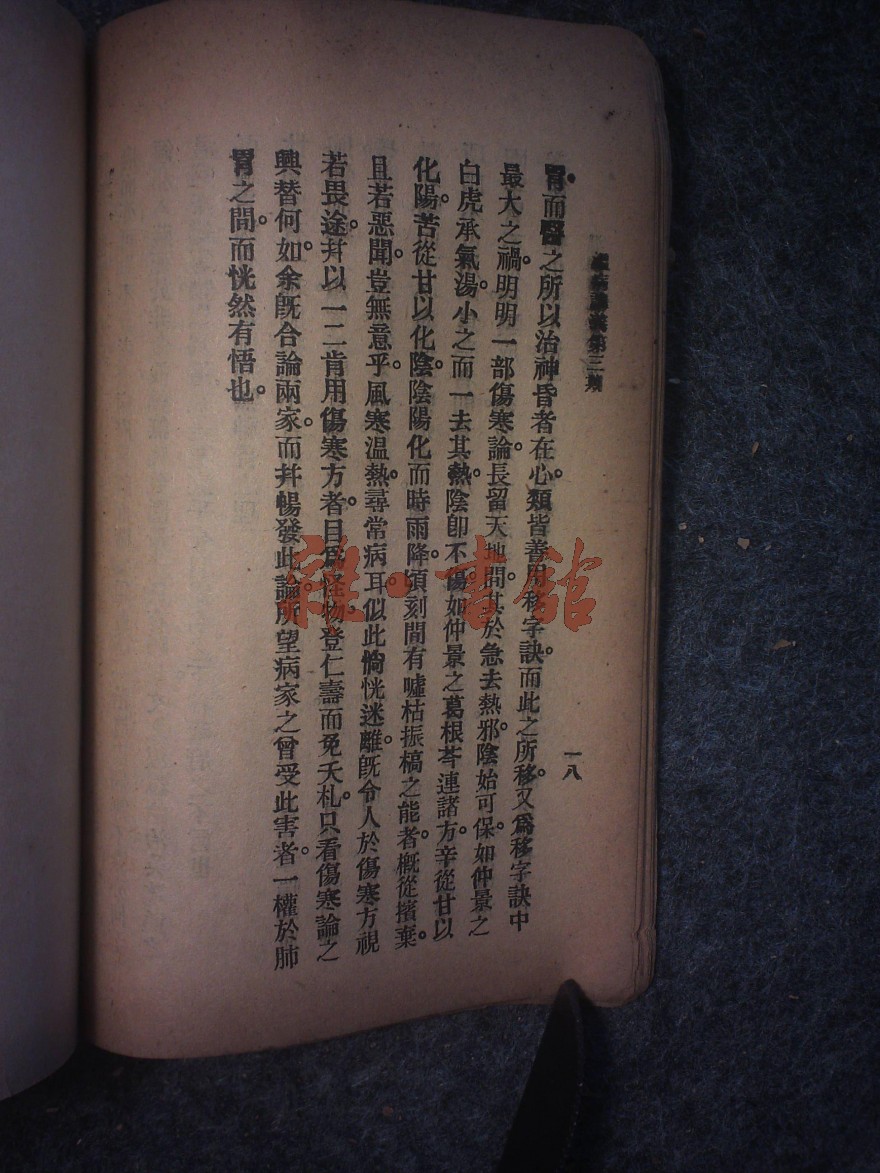 第三期
一八
胃而醫之所以治神昏者在心。類皆善用移字訣。而此之所移。又爲移字訣中
最大之禍。明明一部傷寒論。長留天地間。其於急去熱邪。陰始可保。如仲景之
白虎承氣湯。小之而一去其熱。陰卽不傷。如仲景之葛根芩連諸方。辛從甘以
化陽。苦從甘以化陰。陰陽化而時雨降。頃刻間有噓枯振槁之能者。槪從擯棄。
且若惡聞。豈無意乎。風寒溫熱。尋常病耳。似此惝恍迷離。旣令人於傷寒方視
若畏途。幷以一二肯用傷寒方者。目爲怪物。登仁壽而免夭札。只看傷寒論之
興替何如。余旣合論兩家。而幷暢發此論。所望病家之曾受此害者。一權於肺
胃之間。而恍然有悟也。
雜·書館